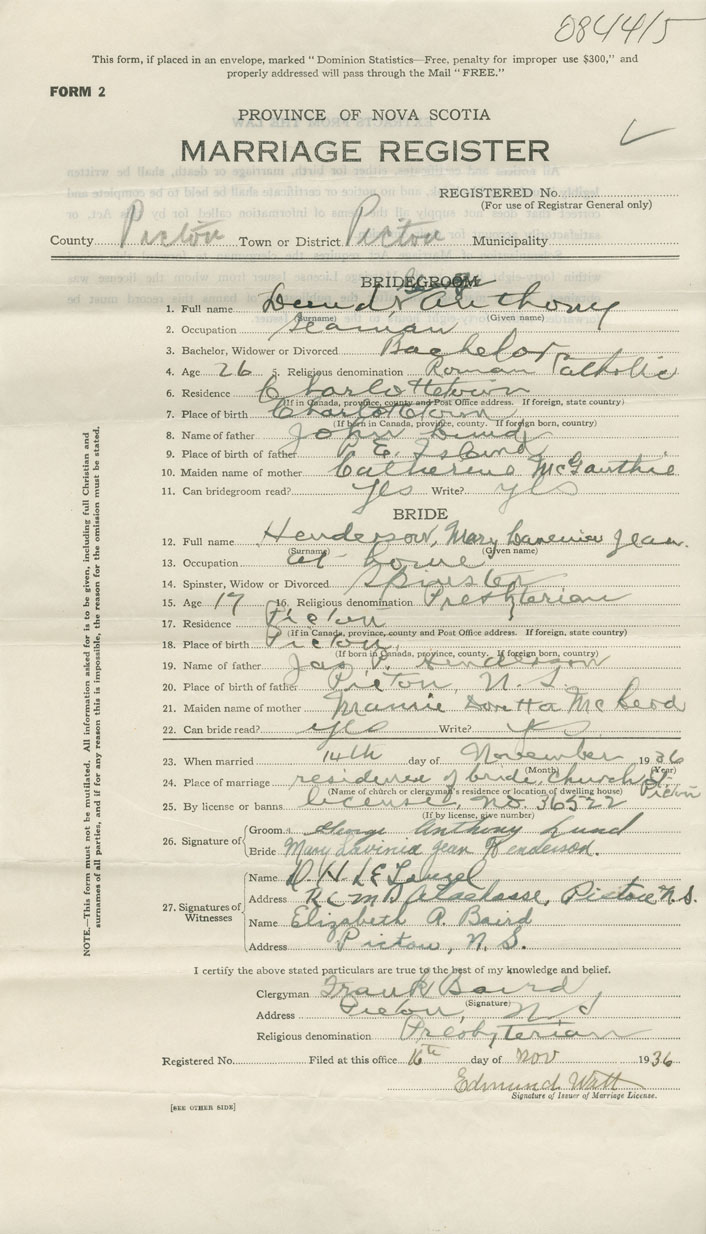 084415
This form, if placed in an envelope, marked "Dominion Statistics—Free, penalty for improper use $300," and
properly addressed will pass through the Mail "FREE."
FORM 2
PROVINCE OF NOVA SCOTIA
MARRIAGE REGISTER
REGISTERED No.
(For use of Registrar General only)
County Pictou Town or District Pictou Municipality
BRIDEGROOM
1. Full name Lund, Anthony
(Surname) (Given name)
2. Occupation Seaman
3. Bachelor, Widower or Divorced Bachelor
4. Age 26 5. Religious denomination Roman Catholic
6. Residence Charlottetown
(If in Canada, province, county and Post Office address. If foreign, state country)
7. Place of birth Charlottetown
(If born in Canada, province, county. If foreign born, country)
8. Name of father John Lund
9. Place of birth of father P. E. Island
10. Maiden name of mother Catherine
11. Can bridegroom read? Yes Write? yes
BRIDE
12. Full name Henderson, Mary Jean.
(Surname) (Given name)
13. Occupation at home
14. Spinster, Widow or Divorced Spinster
15. Age 17 16. Religious denomination Presbyterian
17. Residence Pictou
(If in Canada, province, county and Post Office address. If foreign, state country)
18. Place of birth Pictou,
(If born in Canada, province, county. If foreign born, country)
19. Name of father Jas. P. Henderson
20. Place of birth of father Pictou, N. S.
21. Maiden name of mother Mannie Doretta McLeod
22. Can bride read? yes Write? yes
23. When married 14th day of November 1936
(Month) (Year)
24. Place of marriage residence of bride, Church St. Pictou
(Name of church or clergyman's residence or location of dwelling house)
25. By license or banns license, No 36522
(If by license, give number)
26. Signature of Groom George Anthony Lund
Bride Mary Lavinia Jean Henderson.
27. Signatures of Witnesses
Name D. H.
Address R C M P Pictou N.S.
Name Elizabeth A. Baird
Address Pictou, N. S.
I certify the above stated particulars are true to the best of my knowledge and belief.
Clergyman Frank Baird
(Signature)
Address Pictou, N S
Religious denomination Presbyterian
Registered No. Filed at this office 16th day of Nov 1936
Edmund Watt
Signature of Issuer of Marriage License.
[SEE OTHER SIDE]
NOTE.—This form must not be mutilated. All information asked for is to be given, including full Christian and
surnames of all parties, and if for any reason this is impossible, the reason for the omission must be stated.